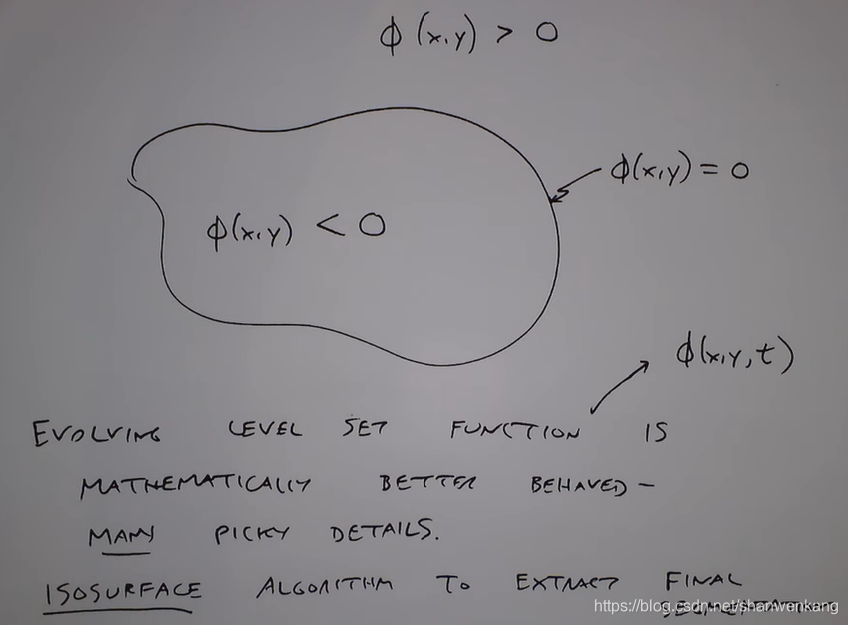 ϕ(x,y) > 0
ϕ(x,y) = 0
ϕ(x,y) < 0
ϕ(x,y,t)
EVOLVING LEVEL SET FUNCTION IS
MATHEMATICALLY BETTER BEHAVED –
MANY PICKY DETAILS.
ISOSURFACE ALGORITHM TO EXTRACT FINAL
SEGMENTATION
https://blog.csdn.net/shanwenkang